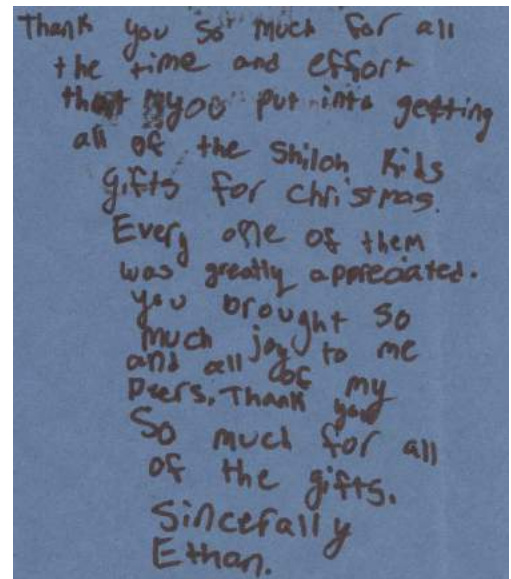 Thank you so much for all
the time and effort
that you put into getting
all of the Shiloh Kids
gifts for christmas.
Every one of them
was greatly appreciated.
you brought so
much joy to me
and all of my
peers. Thank you
So much for all
of the gifts.
Sincerally
Ethan.